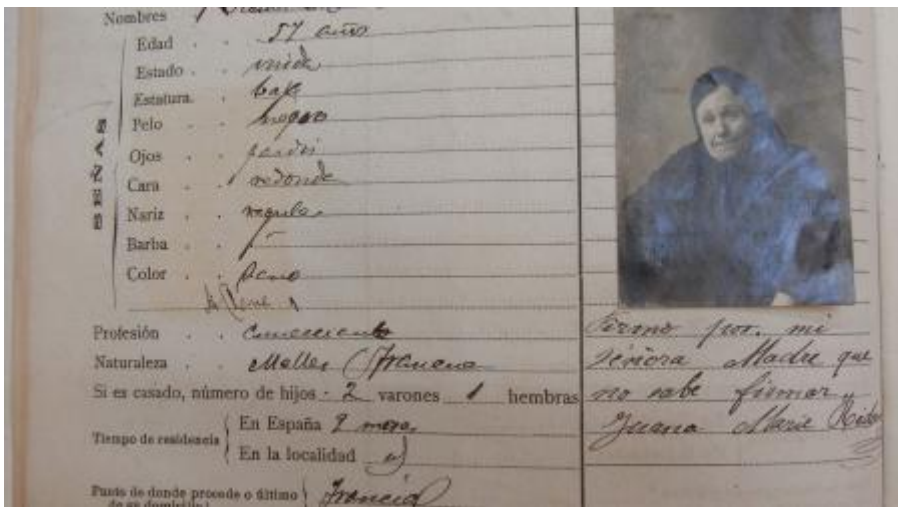 Nombres
Edad . . 57 años
Estado . . viuda
Estatura. . baja
Pelo . . negro
Ojos . . pardos
Cara . . redonda
Nariz . . regular
Barba . . -
Color . . sano
SEÑAS
Profesión . . Comerciante
Naturaleza . . Melles (Francia
Si es casado, número de hijos - 2 varones 1 hembras
Tiempo de residencia
En España 2 meses
En la localidad id
Punto de donde procede o último
de su domicilio
Francia
Firmo por mi
Señora Madre que
no sabe firmar
Juana Marie